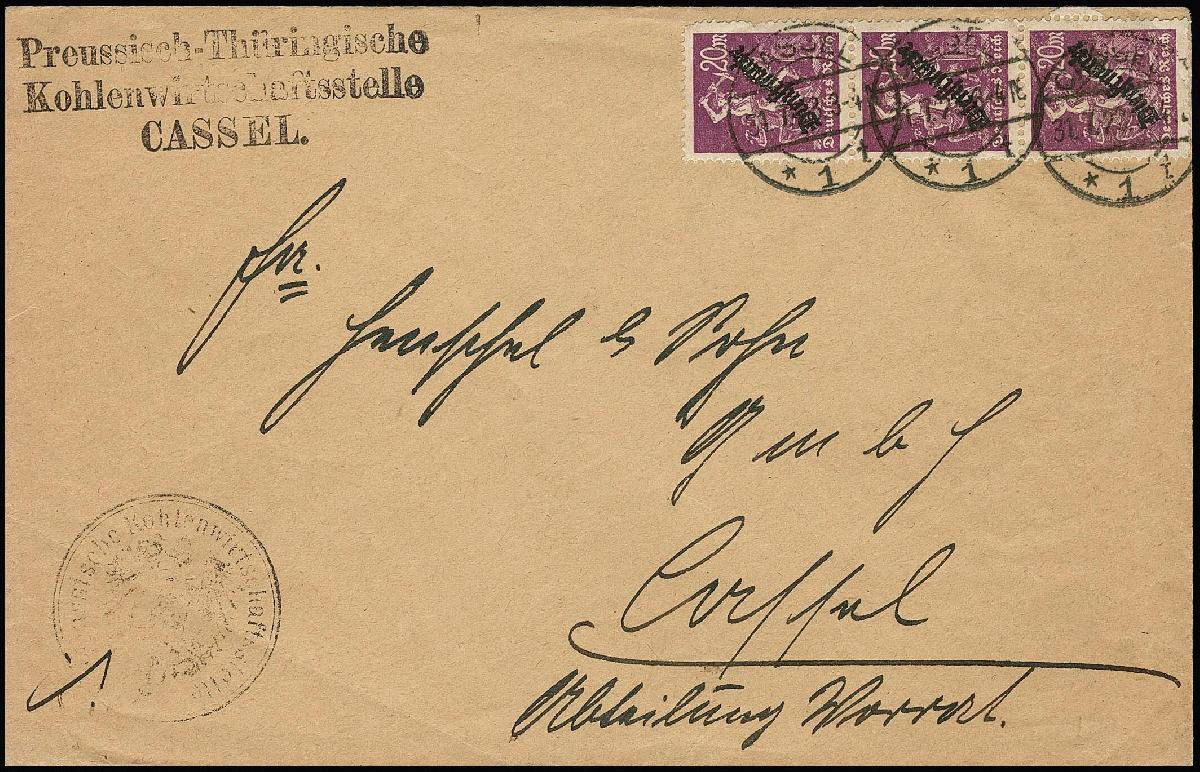 Preussisch-Thüringische
Kohlenwirtschaftsstelle
CASSEL.
20M
Deutsches Reich
Dienstmarke
20M
Deutsches Reich
Dienstmarke
20M
Deutsches Reich
Dienstmarke
* 1 f
* 1 f
* 1 f
Fa.
Henschel & Sohn
G m b H
Cassel
Abteilung Vorrat.
Kohlenwirtschaftsstelle